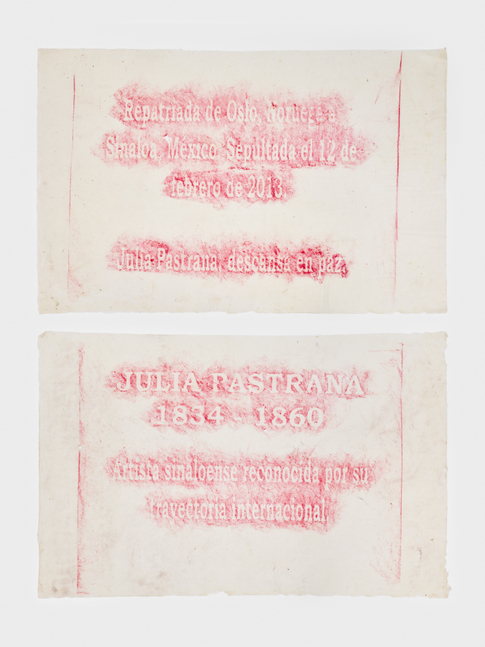 Repatriada de Oslo, Noruega a
Sinaloa, México. Sepultada el 12 de
febrero de 2013.
Julia Pastrana, descansa en paz.
JULIA PASTRANA
1834 - 1860
Artista sinaloense reconocida por su
trayectoria internacional